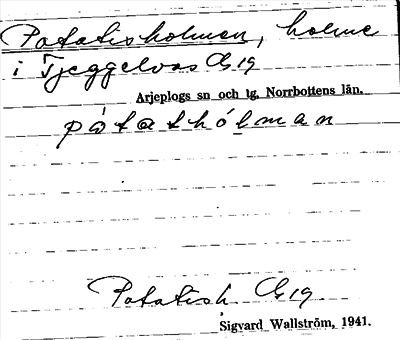 Potatisholmen, holme
i Tjeggelvas C 19
Arjeplogs sn och tg, Norrbottens län.
påtathólman
Potatish. C 19
Sigvard Wallström, 1941.